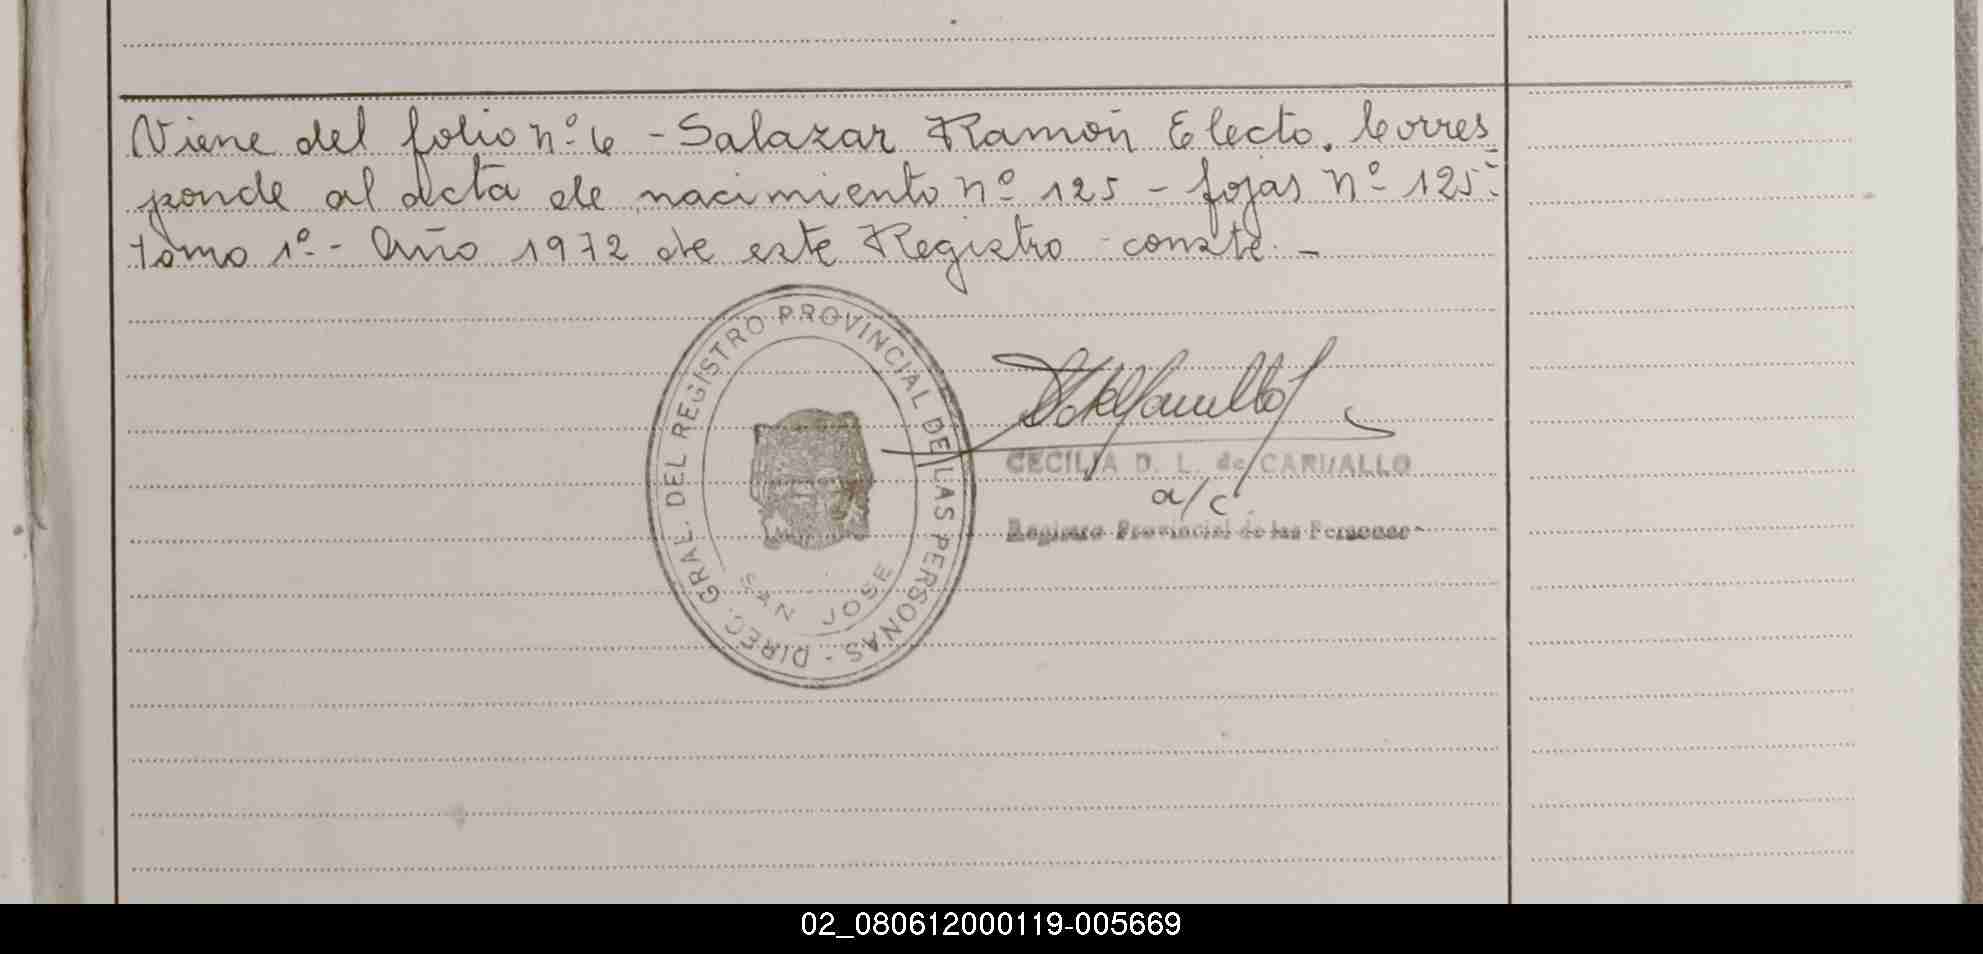 Viene del folio nº 6 - Salazar Ramón Electo. Corres
ponde al acta de nacimiento nº 125 - fojas nº 125 -
tomo 1º - Año 1972 de este Registro - conste. -
DIREC. GRAL. DEL REGISTRO PROVINCIAL DE LAS PERSONAS -
SAN JOSE
CECILIA D. L. de CARVALLO
a/c
Registro Provincial de las Personas
02_080612000119-005669